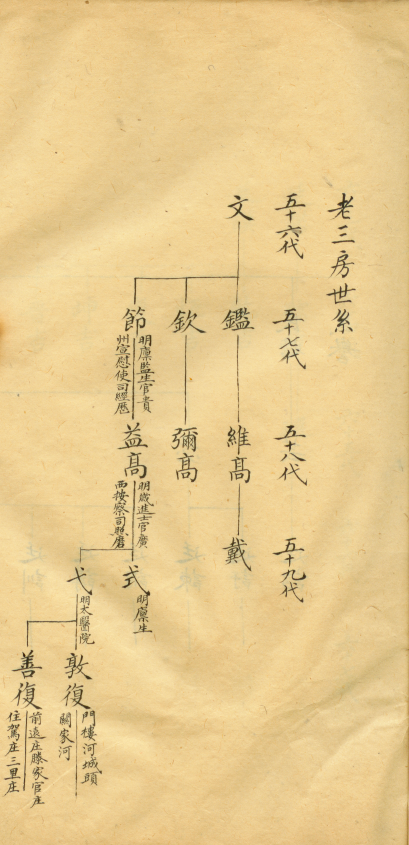 老三房世系
五十六代
五十七代
五十八代
五十九代
文
鑑
維高
戴
欽
彌高
節
明廩監生官貴
州宣慰使司經歷
益高
明歲進士官廣
西按察司照磨
式
明廩生
弋
明太醫院
敦復
門樓河城頭
關家河
善復
前遠庄滕家官庄
住駕庄三里庄